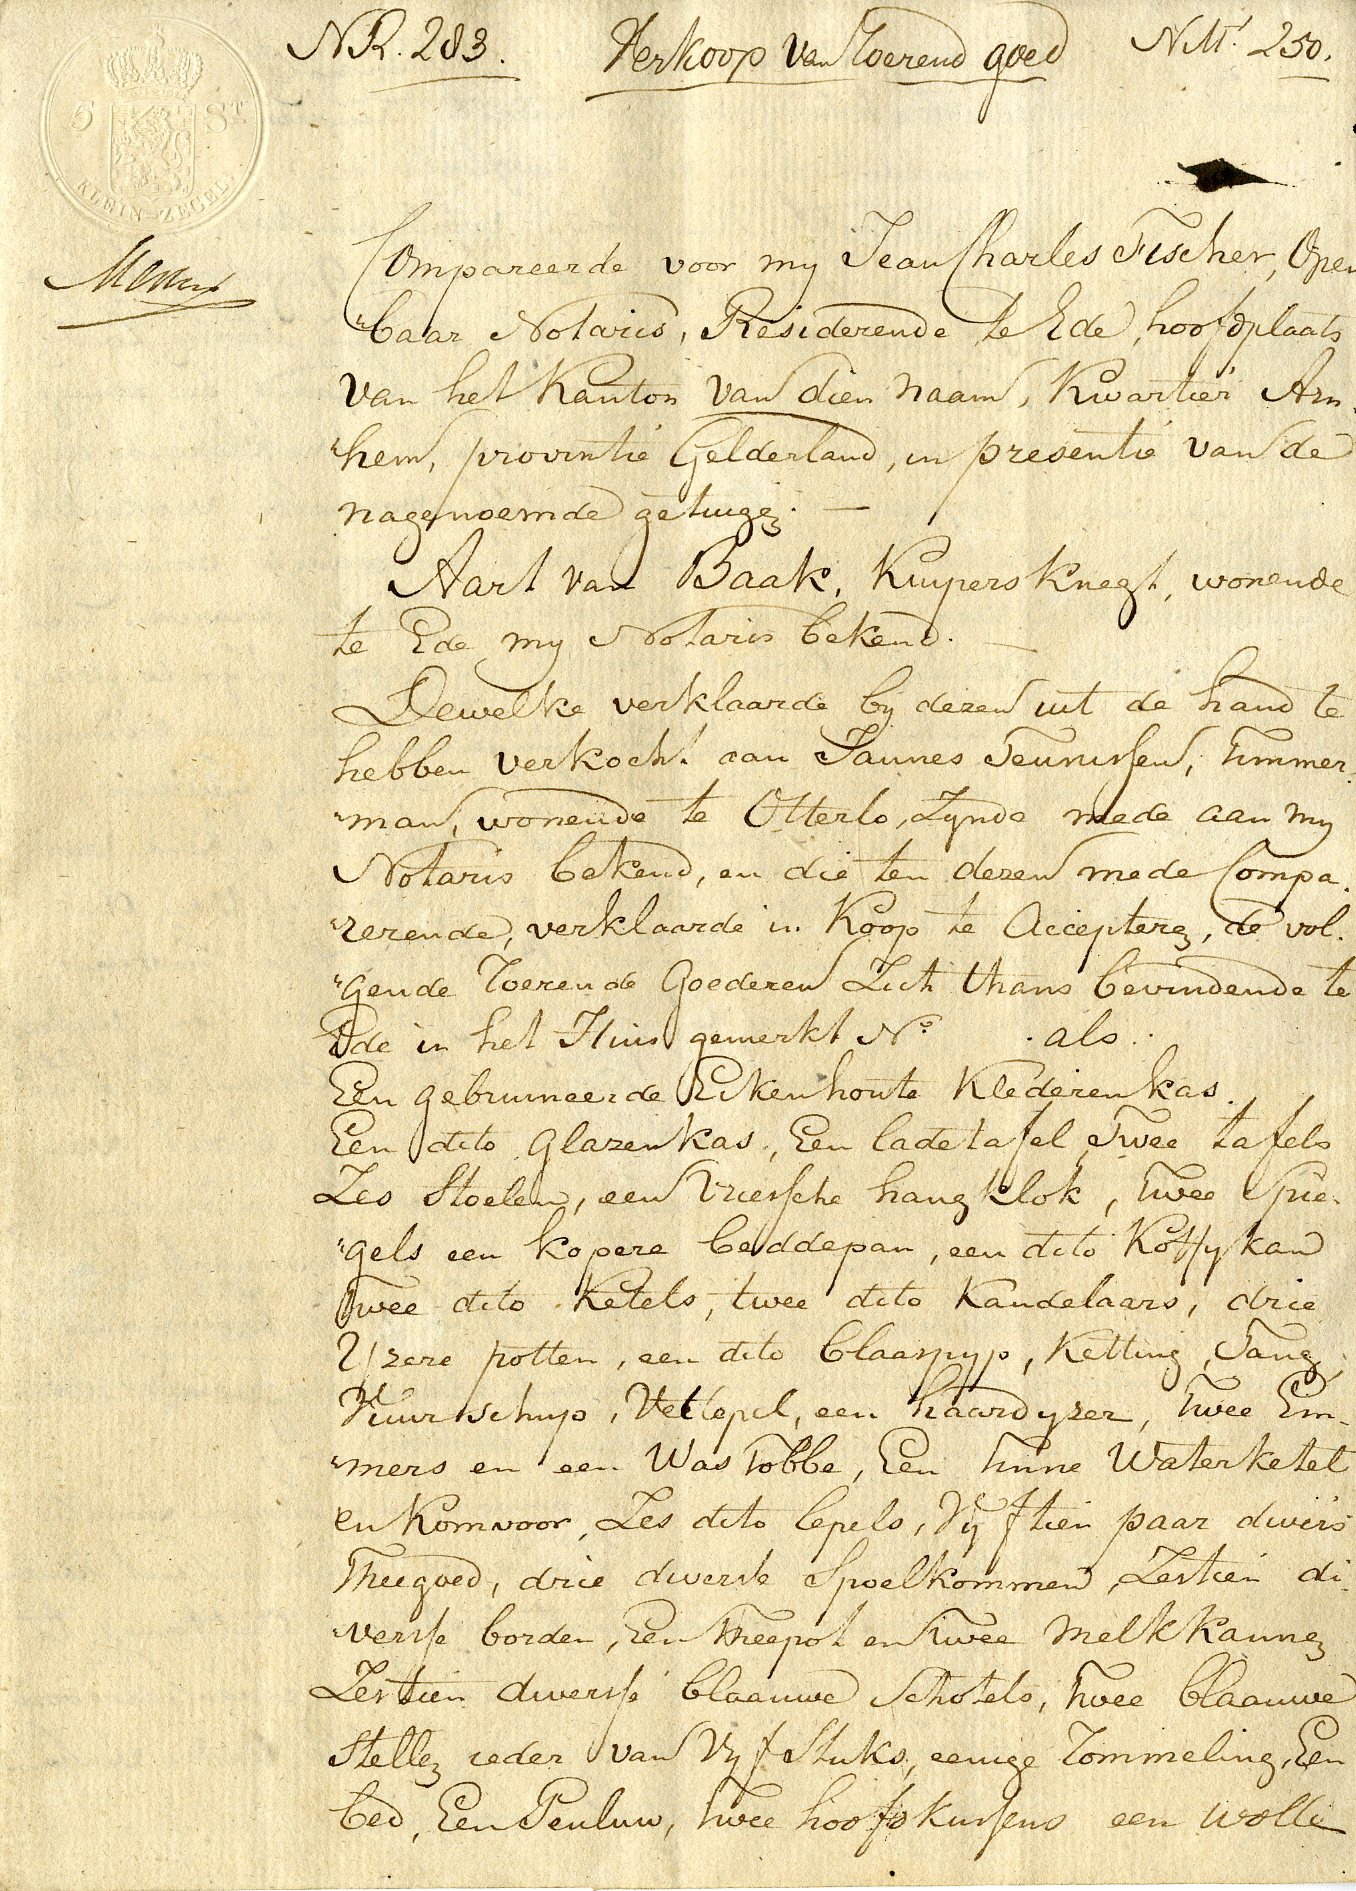 NR. 283. Verkoop van Roerend goed NMt. 250.
5 ST
KLEIN-ZEGEL
Compareerde voor my Jean Charles Fischer, Open
"baar Notaris, Residerende te Ede, hoofdplaats
van het Kanton van dien naam, Kwartier Arn-
"hem, provintie Gelderland, in presentie van de
nagenoemde getuigen. —
Aart van Baak, Kuypersknegt, wonende
te Ede my Notaris bekend. —
Dewelke verklaarde by dezen uit de hand te
hebben verkocht aan Jannes Teunissen, Timmer-
"man, wonende te Otterlo, Zynde mede aan my
Notaris bekend, en die ten dezen mede Compa-
"rerende, verklaarde in Koop te Accepteren, de vol-
"gende Roerende Goederen Zich thans bevindende te
Ede in het Huis gemerkt No. als:
Een gebruineerde Eikenhoute Klederenkas.
Een dito Glazenkas, Een ladetafel, Twee tafels
Zes Stoelen, een Vriesche hangklok, Twee Spie-
"gels een kopere beddepan, een dito Koffykan
Twee dito Ketels, twee dito Kandelaars, drie
Yzere potten, een dito blaaspyp, Ketting, Tang,
Vuurschup, Vetlepel, een haardyzer, Twee Em-
"mers en een Was Tobbe, Een Tinne Waterketel
en Komvoor, Zes dito lepels, Vyftien paar divers
Theegoed, drie diverse Spoelkommen, Zestien di-
"verse borden, Een Theepot en Twee Melkkannen
Zestien diverse blaauwe Schotels, Twee blaauwe
Stellen ieder van Vyf Stuks, eenige Rommeling, Een
bed, Een Peuluw, Twee hoofdkussens een wolle